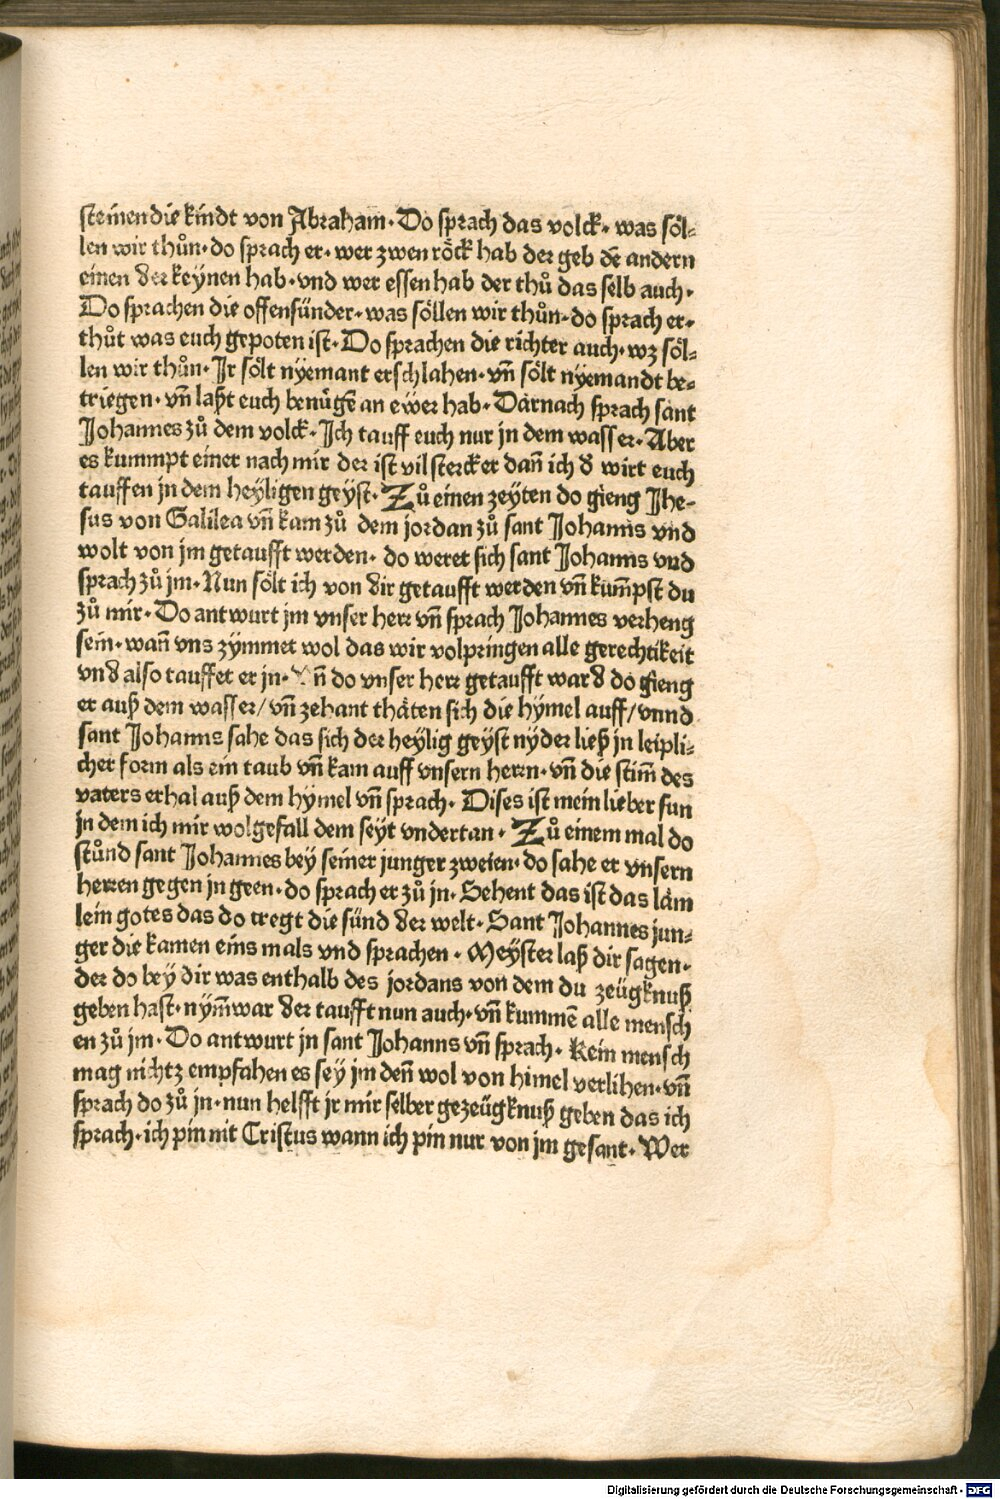 steinen die kindt von Abraham· Do sprach das volck· was söl⸗
len wir thůn· do sprach er· wer zwen röck hab der geb dē andern
einen der keÿnen hab· vnd wer essen hab der thů das selb auch·
Do sprachen die offensünder· was söllen wir thůn· do sprach er·
thůt was euch gepoten ist· Do sprachen die richter auch· wz söl⸗
len wir thůn· Ir sölt nÿemant erschlahen· vn̄ sölt nÿemandt be⸗
triegen· vn̄ laßt euch benügē an ewer hab· Darnach sprach sant
Johannes zů dem volck· Ich tauff euch nur in dem wasser· Aber
es kummpt einer nach mir der ist vil stercker dan̄ ich d wirt euch
tauffen in dem heÿligen geÿst· Zů einen zeÿten do gieng Jhe⸗
sus von Galilea vn̄ kam zů dem jordan zů sant Johanns vnd
wolt von jm getaufft werden· do weret sich sant Johanns vnd
sprach zů jm· Nun sölt ich von dir getaufft werden vn̄ kum̄pst du
zů mir· Do antwurt jm vnser herr vn̄ sprach Johannes verheng
sein· wan̄ vns zÿmmet wol das wir volpringen alle gerechtikeit
vnd also tauffet er jn· Vn̄ do vnser herr getaufft ward do gieng
er auß dem wasser/ vn̄ zehant thäten sich die hÿmel auff/ vnnd
sant Johanns sahe das sich der heÿlig geÿst nÿder ließ jn leipli⸗
cher form als ein taub vn̄ kam auff vnsern herrn· vn̄ die stim̄ des
vaters erhal auß dem hÿmel vn̄ sprach· Dises ist mein lieber sun
jn dem ich mir wolgefall dem seÿt vndertan· Zů einem mal do
stůnd sant Johannes beÿ seiner junger zweien· do sahe er vnsern
herren gegen jn geen· do sprach er zů jn· Sehent das ist das läm
lein gotes das do tregt die sünd der welt· Sant Johannes jun⸗
ger die kamen eins mals vnd sprachen· Meÿster laß dir sagen·
der do beÿ dir was enthalb des jordans von dem du zeügknuß
geben hast· nÿm̄war der taufft nun auch· vn̄ kummē alle mensch
en zů jm· Do antwurt jn sant Johanns vn̄ sprach· Kein mensch
mag nichtz empfahen es seÿ jm den̄ wol von himel verlihen· vn̄
sprach do zů jn· nun helfft jr mir selber gezeügknuß geben das ich
sprach· ich pin nit Cristus wann ich pin nur von jm gesant· Wer
Digitalisierung gefördert durch die Deutsche Forschungsgemeinschaft · DFG